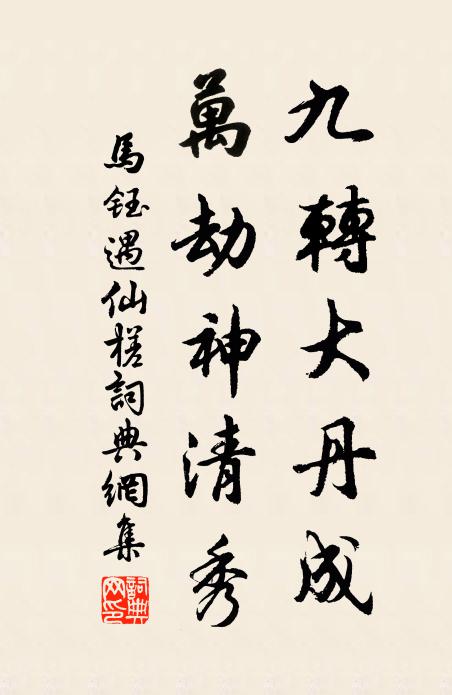 九轉大丹成
萬劫神清秀
馬鈺遇仙槎詞典網集
詞典网印